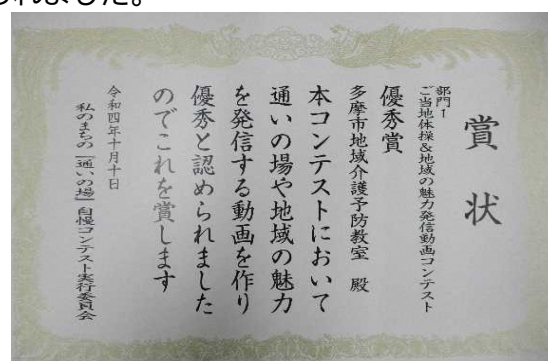 れました。
賞状
部門1
ご当地体操&地域の魅力発信動画コンテスト
優秀賞
多摩市地域介護予防教室 殿
本コンテストにおいて
通いの場や地域の魅力
を発信する動画を作り
優秀と認められました
のでこれを賞します
令和四年十月十日
私のまちの「通いの場」自慢コンテスト実行委員会